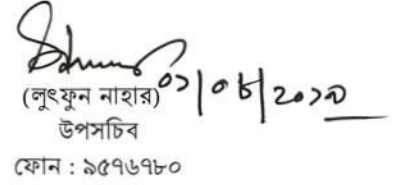 ০১|০৮|২০১৯
(লুৎফুন নাহার)
উপসচিব
ফোন : ৯৫৭৬৭৮০